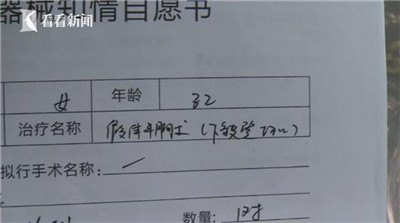 看看新闻
器械知情自愿书
女 年龄 32
治疗名称 假体丰胸术（下皱壁切口）
拟行手术名称：
数量： 1对